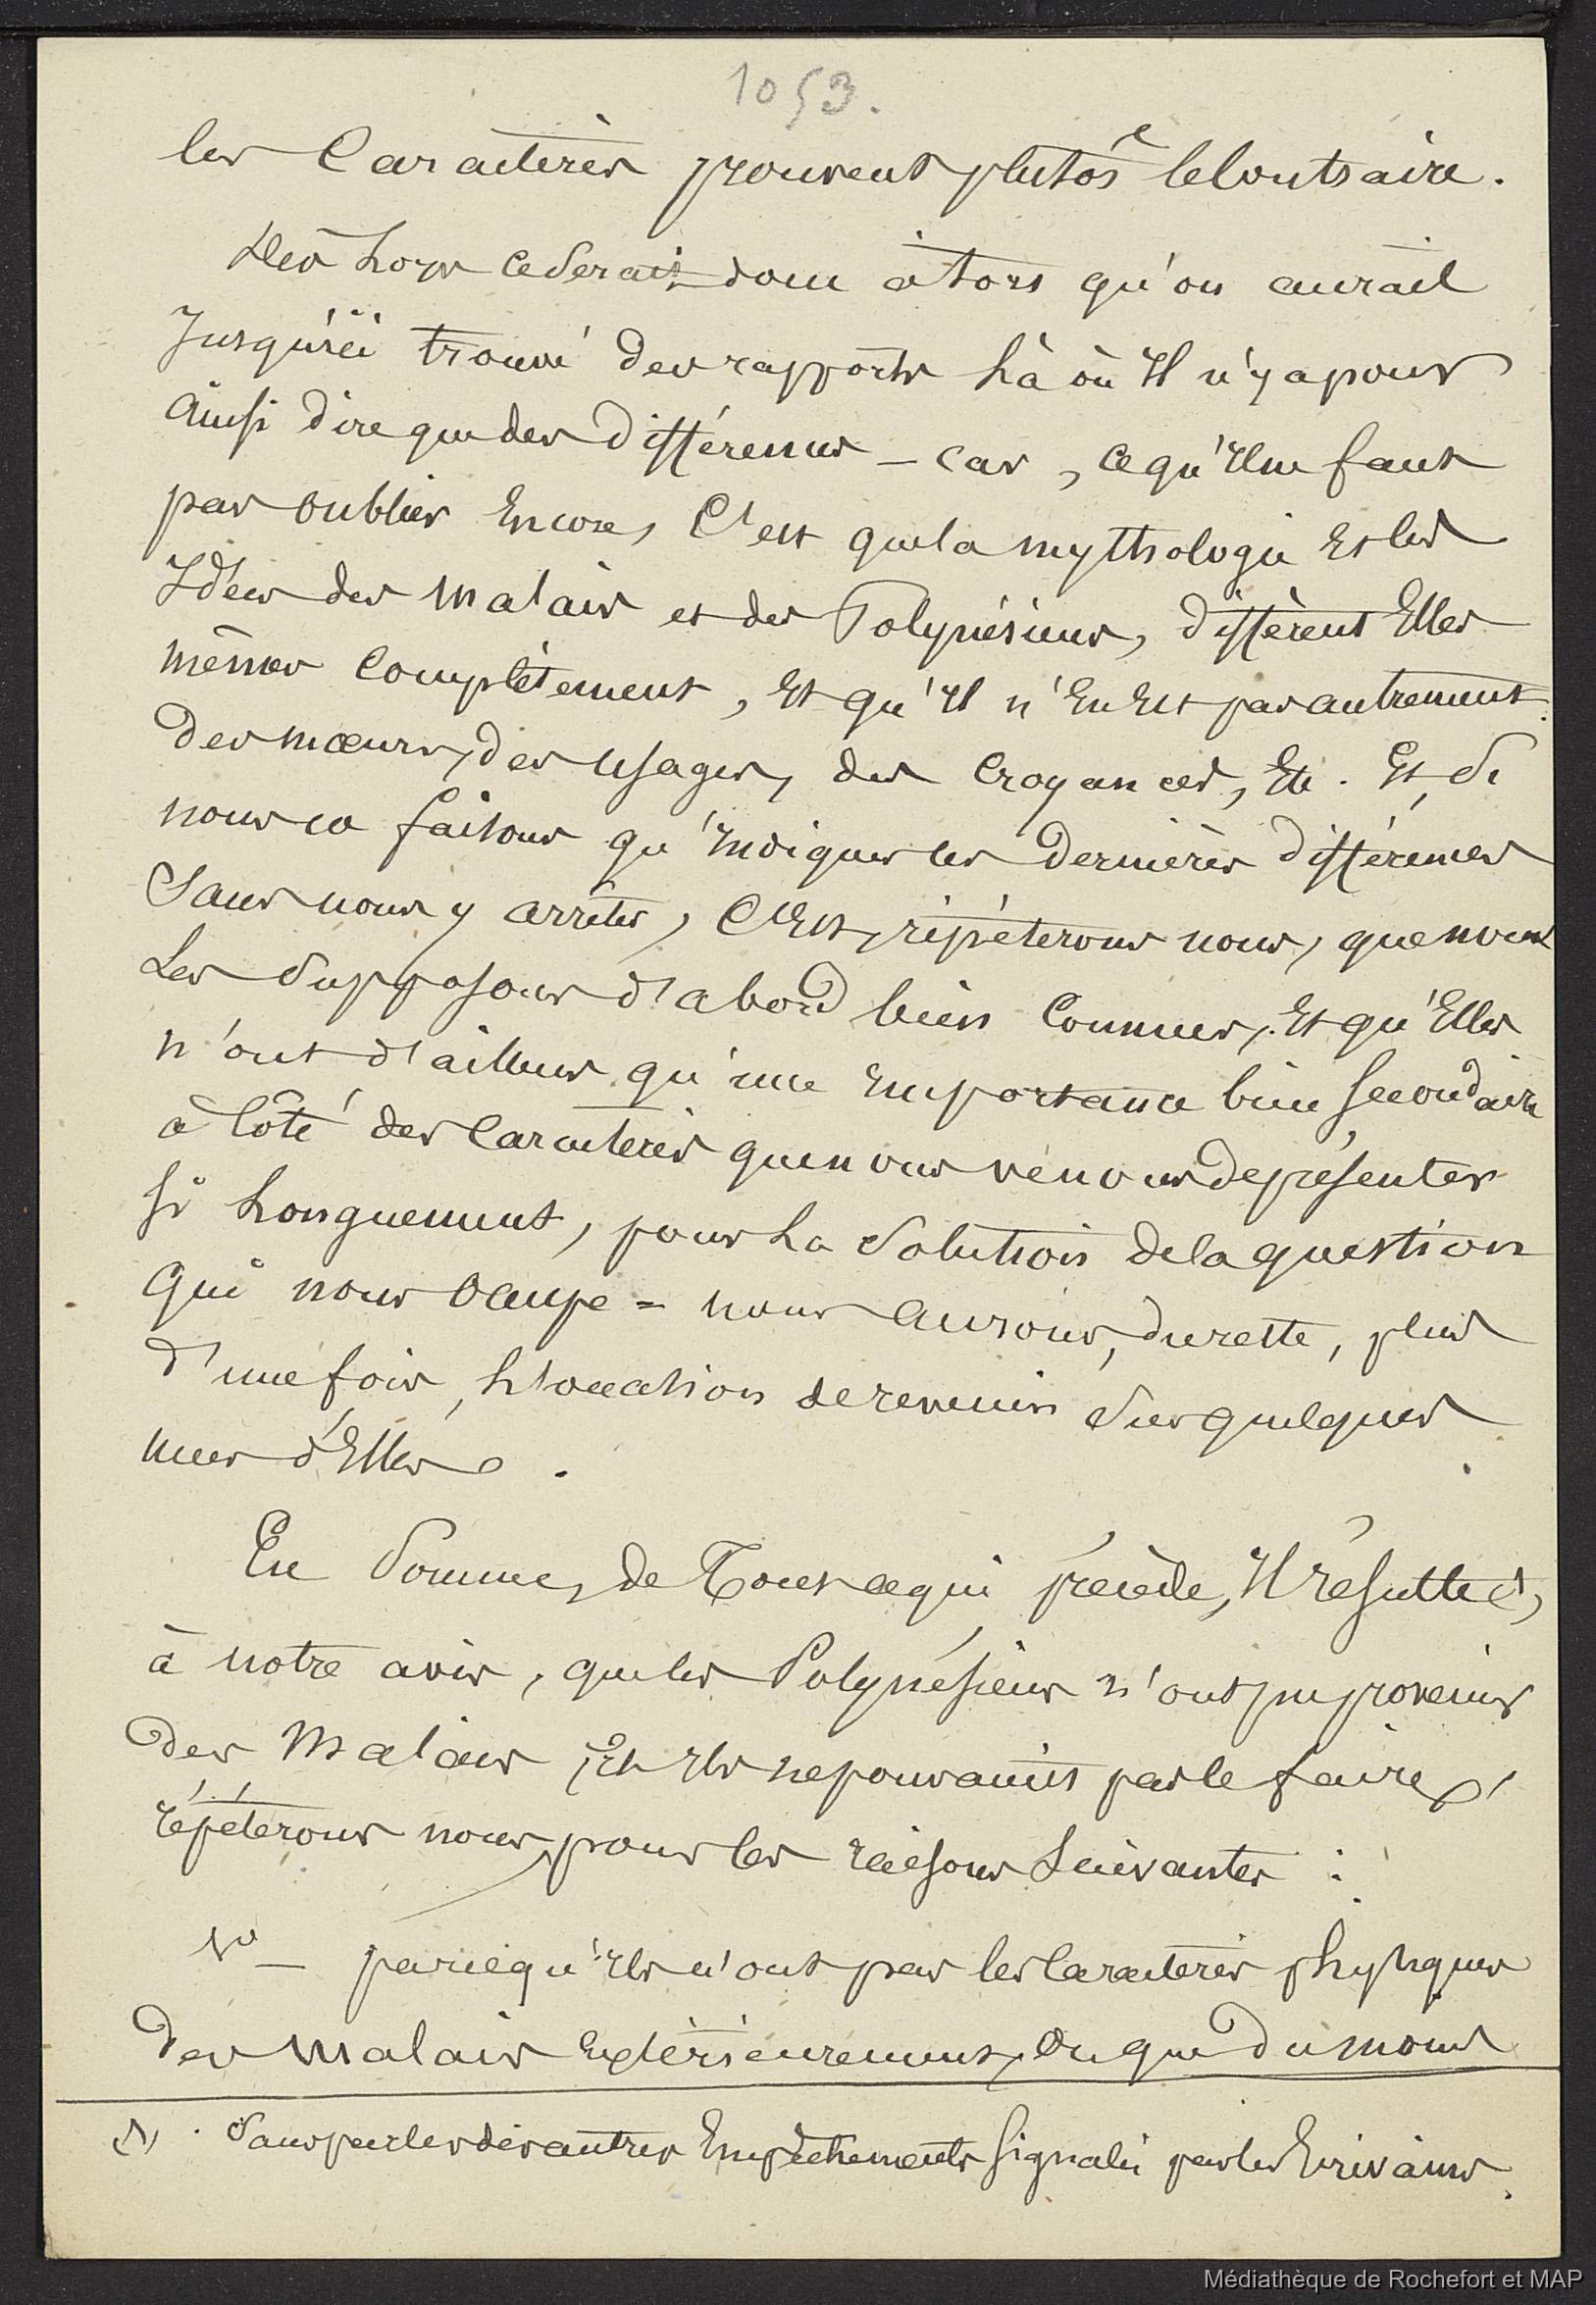 1053.
les Caractères prouvent plutôt le Contraire.
Dès lors ce Serait donc à tort qu'on aurait
Jusqu'ici trouvé des rapports là où Il n'y a pour
Ainsi dire que des différences _ Car, ce qu'Il ne faut
pas oublier Encore, C'est que la mythologie Et les
Idées des Malais et des Polynésiens, diffèrent Elles
mêmes Complètement, Et qu'Il n'En Est pas autrement
des mœurs, des Usages, des Croyances, Etc. Et, Si
nous ne faisons qu'Indiquer les dernières différences
Sans nous y arrêter, C'Est, répèterons nous, que nous
Les Supposons d'abord bien Connues, Et qu'Elles
n'ont d'ailleurs qu'une Importance bien Secondaire
à Côté des Caractères que nous venons de présenter
Si Longuement, pour La Solution de la question
Qui nous Occupe = nous Aurons, du reste, plus
d'une fois, L'occasion de revenir Sur quelques
unes d'Elles.
En Somme, de Tout ce qui précède, Il résulte (1),
à notre avis, que les Polynésiens n'ont pu provenir
des Malais, Et Ils ne pouvaient pas le faire,
répéterons nous, pour les raisons Suivantes :
1º _ parcequ'Ils n'ont pas les Caractères physiques
des Malais Extérieurement, Ou que du moins
(1) . Sans parler des autres Empêchements Signalés par les Ecrivains.
Médiathèque de Rochefort et MAP